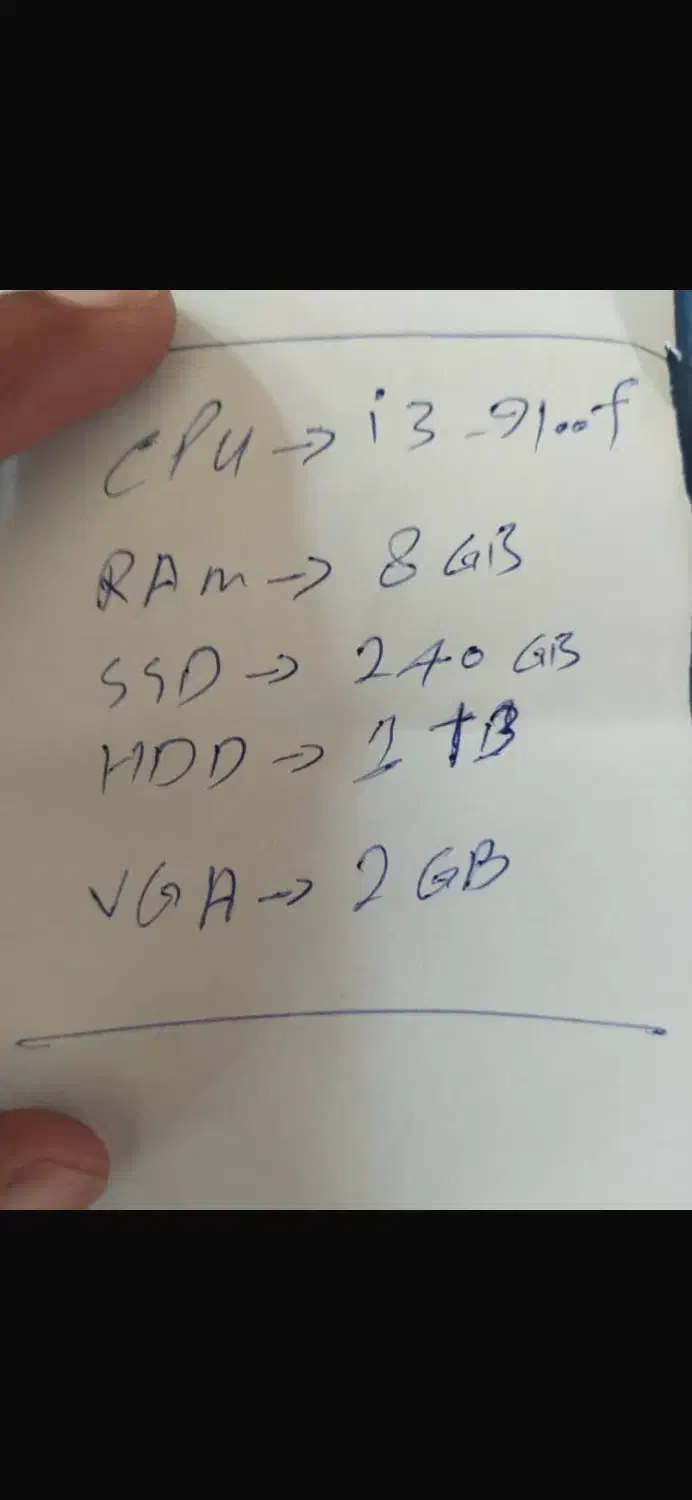 CPU → i3-9100f
RAm → 8 GB
SSD → 240 GB
HDD → 1 TB
VGA → 2 GB